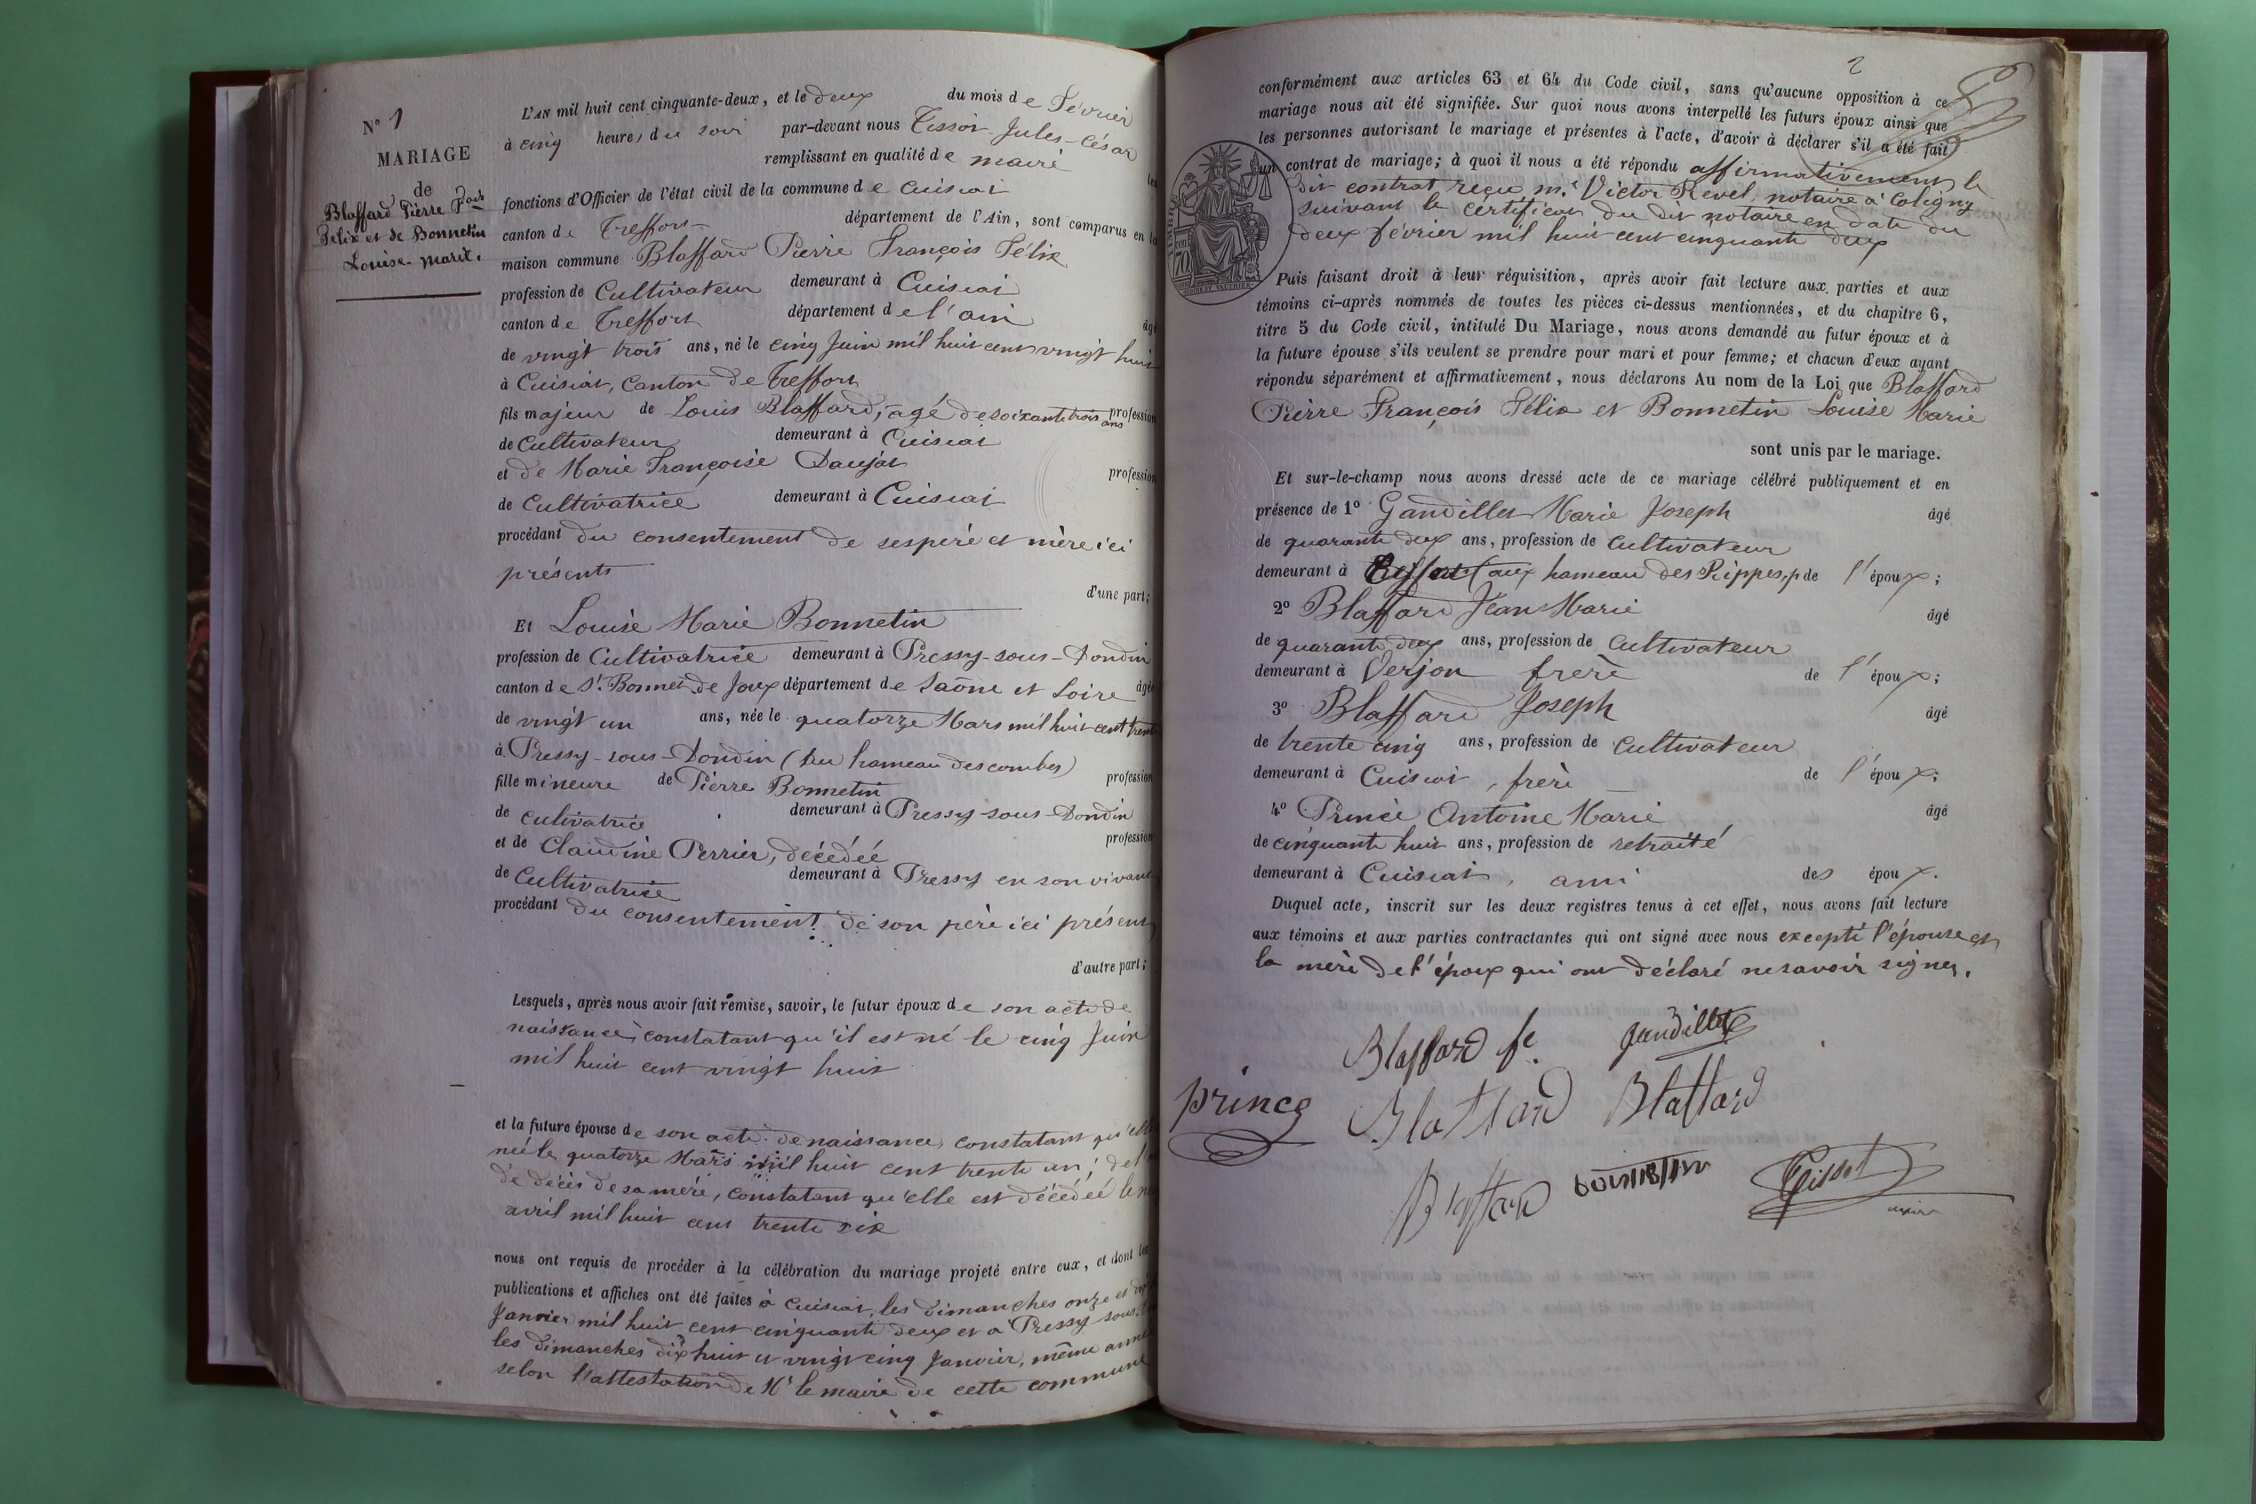 N° 1
MARIAGE
de
Blaffard Pierre Fois
Félix et de Bonnetin
Louise-Marie.
L'AN mil huit cent cinquante-deux, et le deux du mois de Février
à cinq heures du soir par-devant nous Tissot Jules-César
remplissant en qualité de maire les
fonctions d'Officier de l'état civil de la commune de Cuisiat
canton de Treffort département de l'Ain, sont comparus en la
maison commune Blaffard Pierre François Félix
profession de Cultivateur demeurant à Cuisiat
canton de Treffort département de l'ain âgé
de vingt trois ans, né le cinq Juin mil huit cent vingt huit
à Cuisiat, Canton de Treffort
fils majeur de Louis Blaffard, agé de soixante trois ans profession
de Cultivateur demeurant à Cuisiat
et de Marie Françoise Daujat profession
de Cultivatrice demeurant à Cuisiat
procédant du consentement de ses père et mère ici
présents
d'une part;
Et Louise Marie Bonnetin
profession de Cultivatrice demeurant à Pressy-sous-Dondin
canton de St. Bonnet de Joux département de Saône et Loire âgée
de vingt un ans, née le quatorze Mars mil huit cent trente
à Pressy-sous-Dondin (au hameau des combes)
fille mineure de Pierre Bonnetin profession
de cultivatrice demeurant à Pressy-sous-Dondin
et de Claudine Perrier, décédée profession
de Cultivatrice demeurant à Pressy en son vivant
procédant du consentement de son père ici présent
d'autre part;
Lesquels, après nous avoir fait remise, savoir, le futur époux de son acte de
naissance, constatant qu'il est né le cinq Juin
mil huit cent vingt huit
et la future épouse de son acte de naissance, constatant qu'elle
née le quatorze Mars mil huit cent trente un; de l'
de décès de sa mère, constatant qu'elle est décédée le
avril mil huit cent trente six
nous ont requis de procéder à la célébration du mariage projeté entre eux, et dont les
publications et affiches ont été faites à Cuisiat, les dimanches onze et
Janvier mil huit cent cinquante deux et à Pressy sous
les dimanches dix huit et vingt cinq Janvier, même année
selon l'attestation de Mr le maire de cette commune
2
conformément aux articles 63 et 64 du Code civil, sans qu'aucune opposition à ce
mariage nous ait été signifiée. Sur quoi nous avons interpellé les futurs époux ainsi que
les personnes autorisant le mariage et présentes à l'acte, d'avoir à déclarer s'il a été fait
un contrat de mariage; à quoi il nous a été répondu affirmativement, le
dit contrat reçu me. Victor Revel, notaire à Coligny
suivant le certificat du dit notaire en date du
deux février mil huit cent cinquante deux
Puis faisant droit à leur réquisition, après avoir fait lecture aux parties et aux
témoins ci-après nommés de toutes les pièces ci-dessus mentionnées, et du chapitre 6,
titre 5 du Code civil, intitulé Du Mariage, nous avons demandé au futur époux et à
la future épouse s'ils veulent se prendre pour mari et pour femme; et chacun d'eux ayant
répondu séparément et affirmativement, nous déclarons Au nom de la Loi que Blaffard
Pierre François Félix et Bonnetin Louise Marie
sont unis par le mariage.
Et sur-le-champ nous avons dressé acte de ce mariage célébré publiquement et en
présence de 1° Gandillet Marie Joseph âgé
de quarante deux ans, profession de Cultivateur
demeurant à Treffort (aux hameau des Rippes, de l'époux;
2° Blaffard Jean Marie âgé
de quarante deux ans, profession de Cultivateur
demeurant à Verjon frère de l'époux;
3° Blaffard Joseph âgé
de trente cinq ans, profession de Cultivateur
demeurant à Cuisiat, frère de l'époux;
4° Prince Antoine Marie âgé
de cinquante huit ans, profession de retraité
demeurant à Cuisiat, ami des époux.
Duquel acte, inscrit sur les deux registres tenus à cet effet, nous avons fait lecture
aux témoins et aux parties contractantes qui ont signé avec nous excepté l'épouse et
la mère de l'époux qui ont déclaré ne savoir signer.
Blaffard fe. Gandillet
Prince Blaffard Blaffard
Blaffard bonnetin Tissot
maire